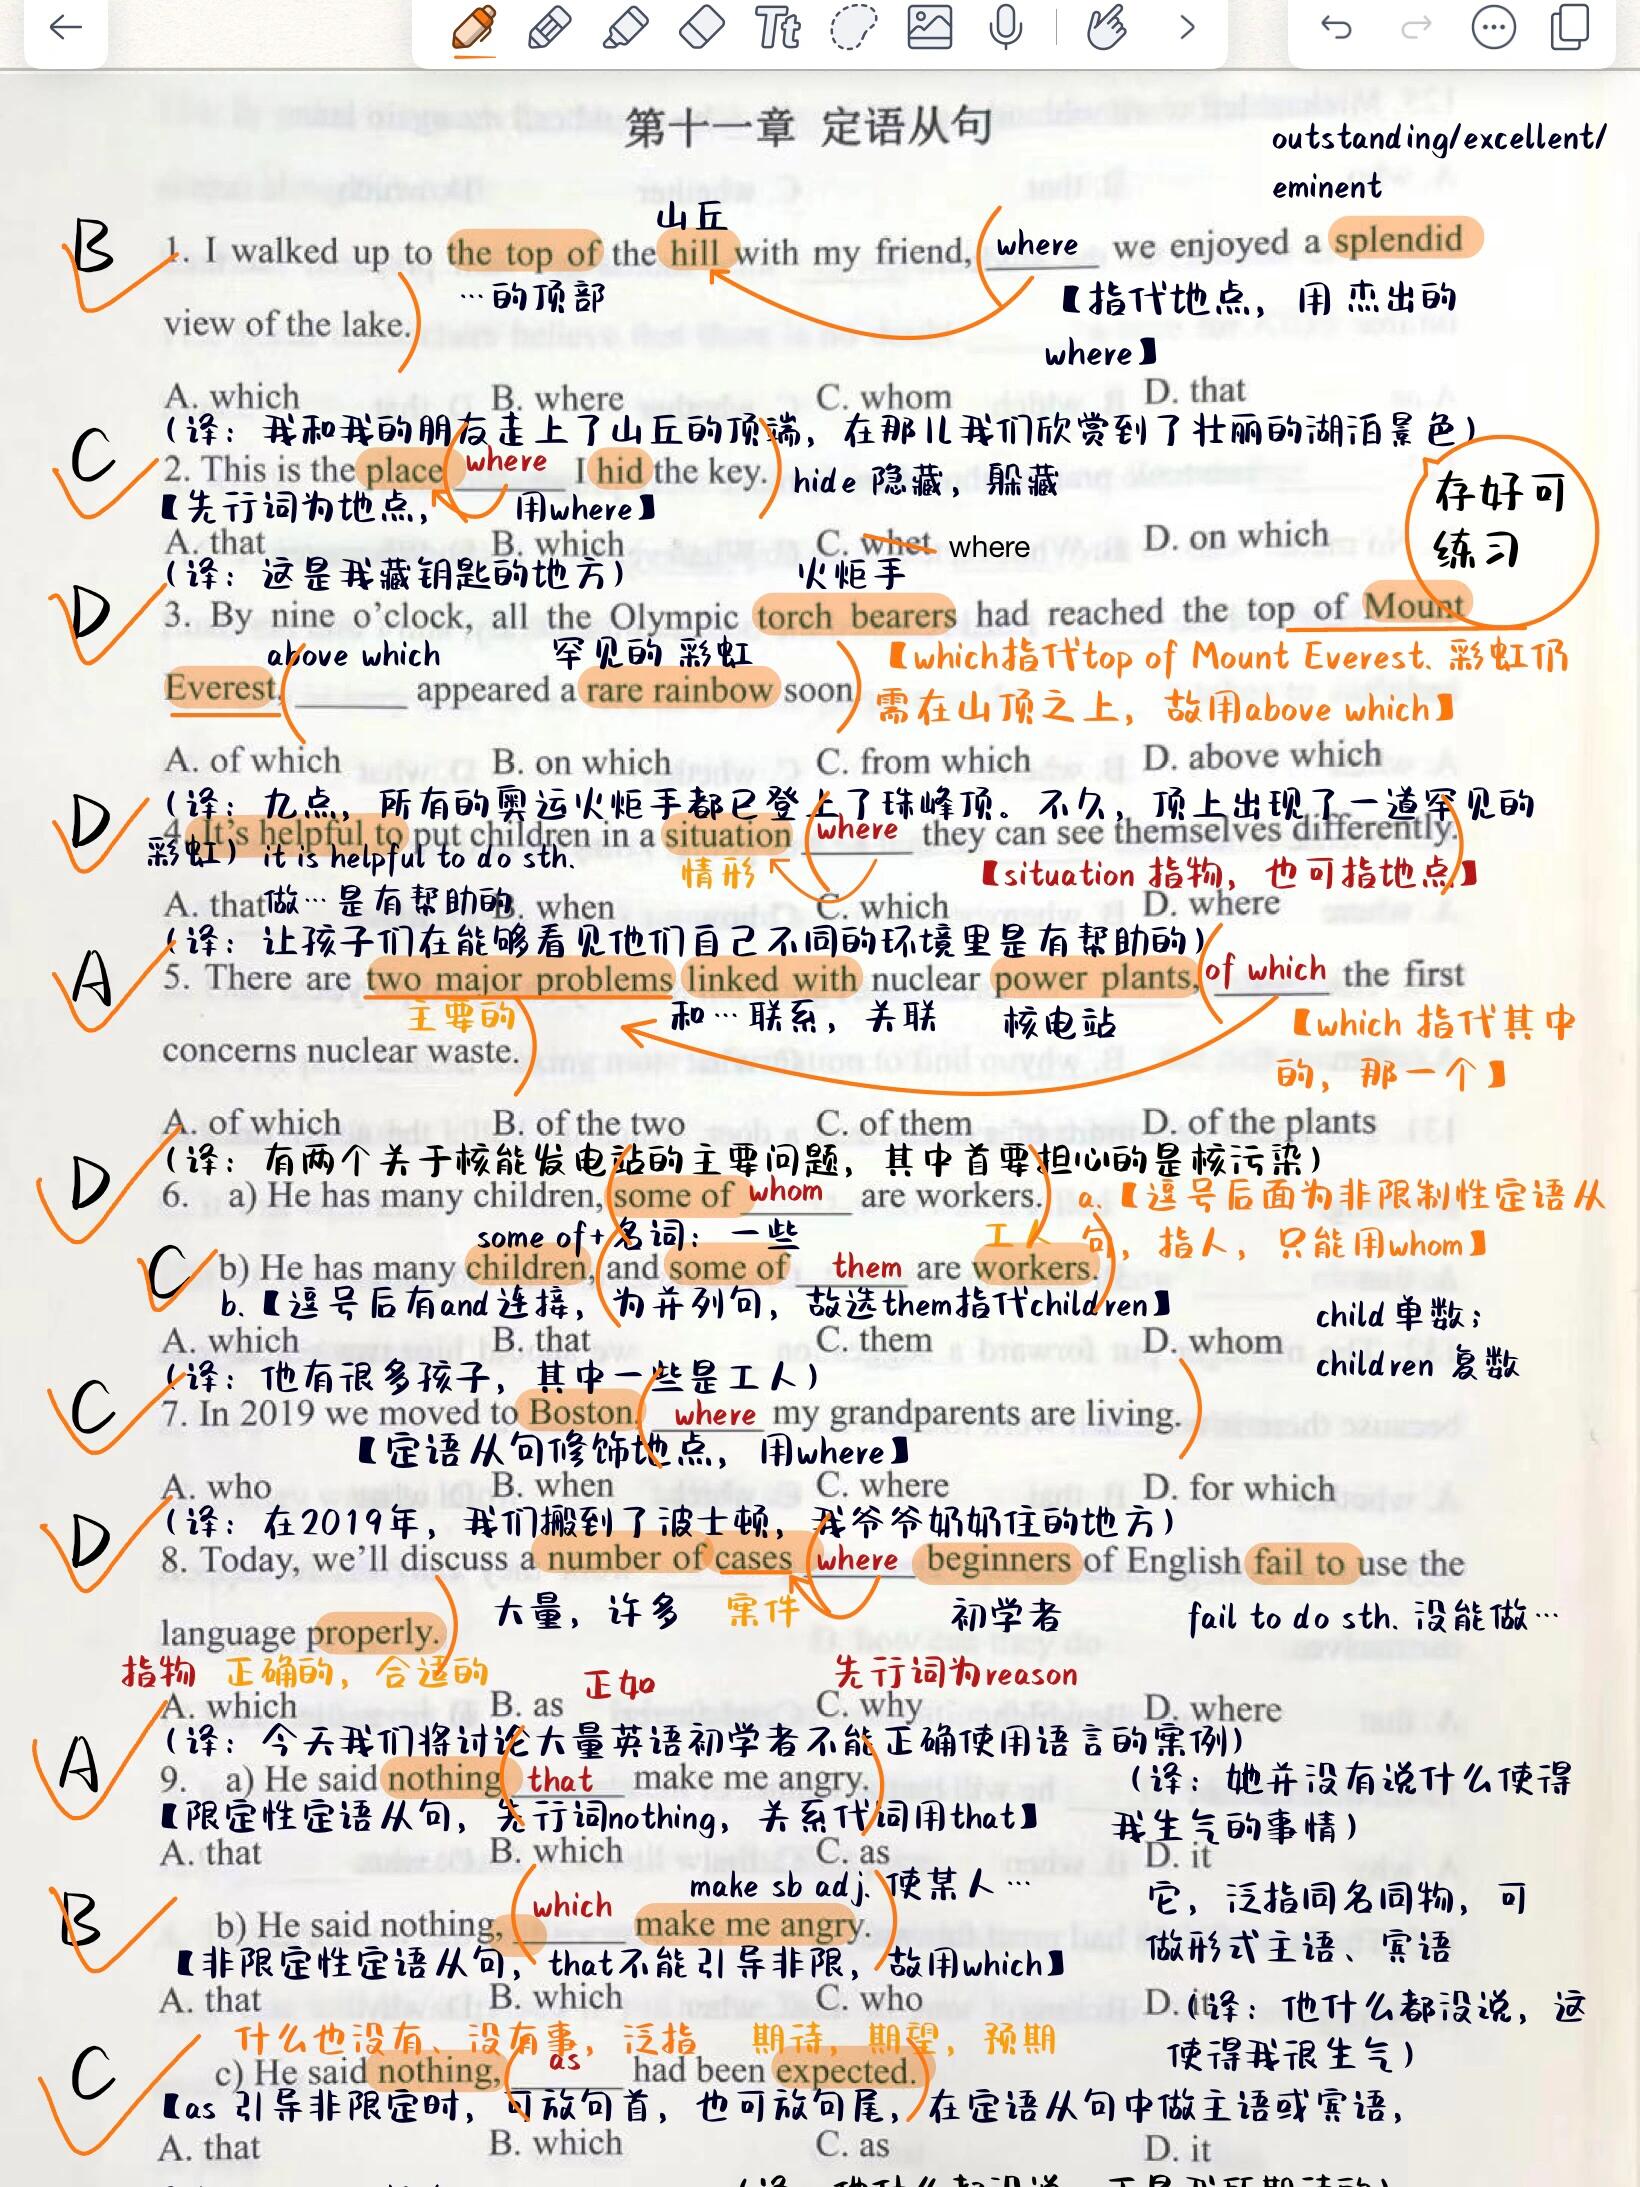 Tt
第十一章 定语从句
outstanding/excellent/
eminent
山丘
B
1. I walked up to the top of the hill with my friend, where we enjoyed a splendid
…的顶部
【指代地点，用 杰出的
view of the lake.
where】
A. which B. where C. whom D. that
(译：我和我的朋友走上了山丘的顶端，在那儿我们欣赏到了壮丽的湖泊景色)
C
2. This is the place where I hid the key. hide 隐藏，躲藏
存好可
练习
【先行词为地点， 用where】
A. that B. which C. whet where D. on which
(译：这是我藏钥匙的地方) 火炬手
D
3. By nine o'clock, all the Olympic torch bearers had reached the top of Mount
above which 罕见的 彩虹 【which指代top of Mount Everest. 彩虹仍
Everest, ______ appeared a rare rainbow soon
需在山顶之上，故用above which】
A. of which B. on which C. from which D. above which
(译：九点，所有的奥运火炬手都已登上了珠峰顶。不久，顶上出现了一道罕见的
D
4. It's helpful to put children in a situation where they can see themselves differently.
彩虹) it is helpful to do sth. 情形 【situation 指物，也可指地点】
A. that 做…是有帮助的 B. when C. which D. where
(译：让孩子们在能够看见他们自己不同的环境里是有帮助的)
A
5. There are two major problems linked with nuclear power plants, of which the first
主要的 和…联系，关联 核电站 【which 指代其中
concerns nuclear waste.
的，那一个】
A. of which B. of the two C. of them D. of the plants
(译：有两个关于核能发电站的主要问题，其中首要担心的是核污染)
D
6. a) He has many children, some of whom are workers. a.【逗号后面为非限制性定语从
some of+名词：一些 工人 句，指人，只能用whom】
C
b) He has many children, and some of them are workers.
b.【逗号后有and连接，为并列句，故选them指代children】
child 单数；
A. which B. that C. them D. whom
children 复数
(译：他有很多孩子，其中一些是工人)
C
7. In 2019 we moved to Boston. where my grandparents are living.
【定语从句修饰地点，用where】
A. who B. when C. where D. for which
(译：在2019年，我们搬到了波士顿，我爷爷奶奶住的地方)
D
8. Today, we'll discuss a number of cases where beginners of English fail to use the
大量，许多 案件 初学者 fail to do sth. 没能做…
language properly.
指物 正确的，合适的 正如 先行词为reason
A. which B. as C. why D. where
(译：今天我们将讨论大量英语初学者不能正确使用语言的案例)
A
9. a) He said nothing that make me angry.
(译：她并没有说什么使得
【限定性定语从句，先行词nothing，关系代词用that】
我生气的事情)
A. that B. which C. as D. it
make sb adj. 使某人…
它，泛指同名同物，可
B
b) He said nothing, which make me angry.
做形式主语、宾语
【非限定性定语从句，that不能引导非限，故用which】
A. that B. which C. who D. it
(译：他什么都没说，这
什么也没有、没有事，泛指 期待，期望，预期
使得我很生气)
C
c) He said nothing, as had been expected.
【as 引导非限定时，可放句首，也可放句尾，在定语从句中做主语或宾语，
A. that B. which C. as D. it